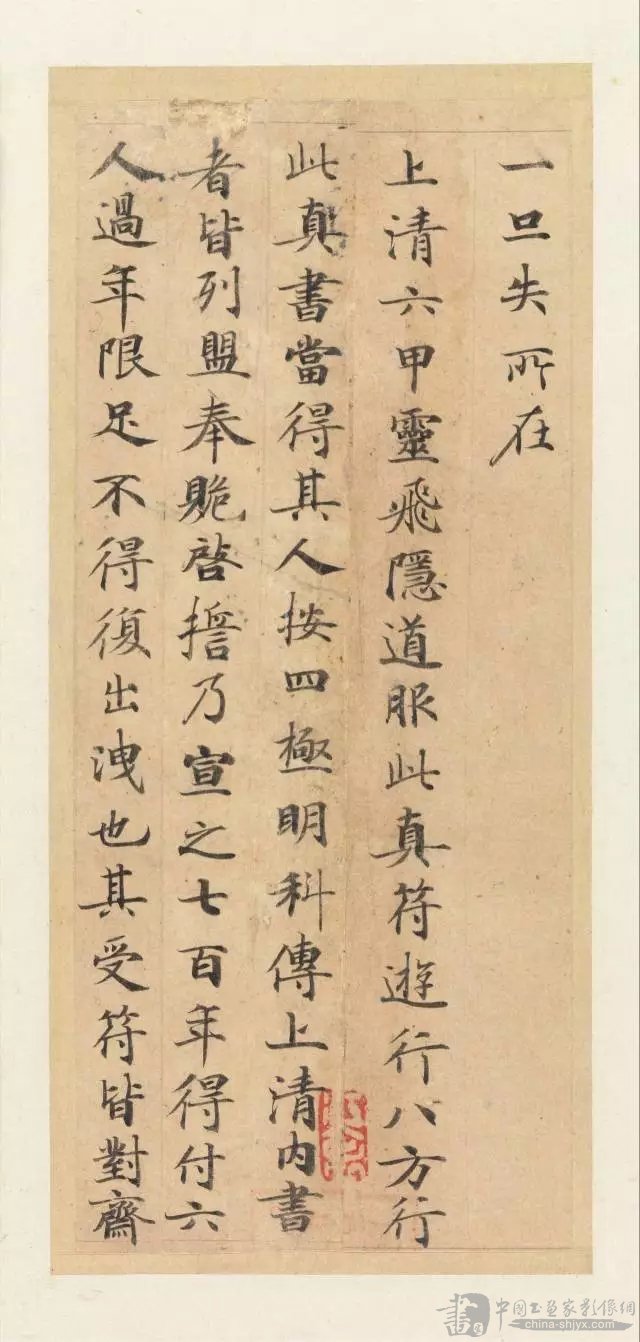 一旦失所在
上清六甲靈飛隱道服此真符遊行八方行
此真書當得其人按四極明科傳上清內書
者皆列盟奉贶啓誓乃宣之七百年得付六
人過年限足不得復出洩也其受符皆對齋
中國書畫家影像網
china-shjyx.com